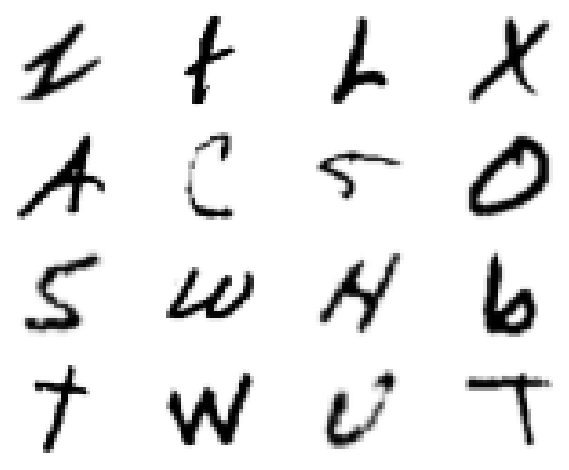 Z t L X
A C S O
S W H b
T W U T